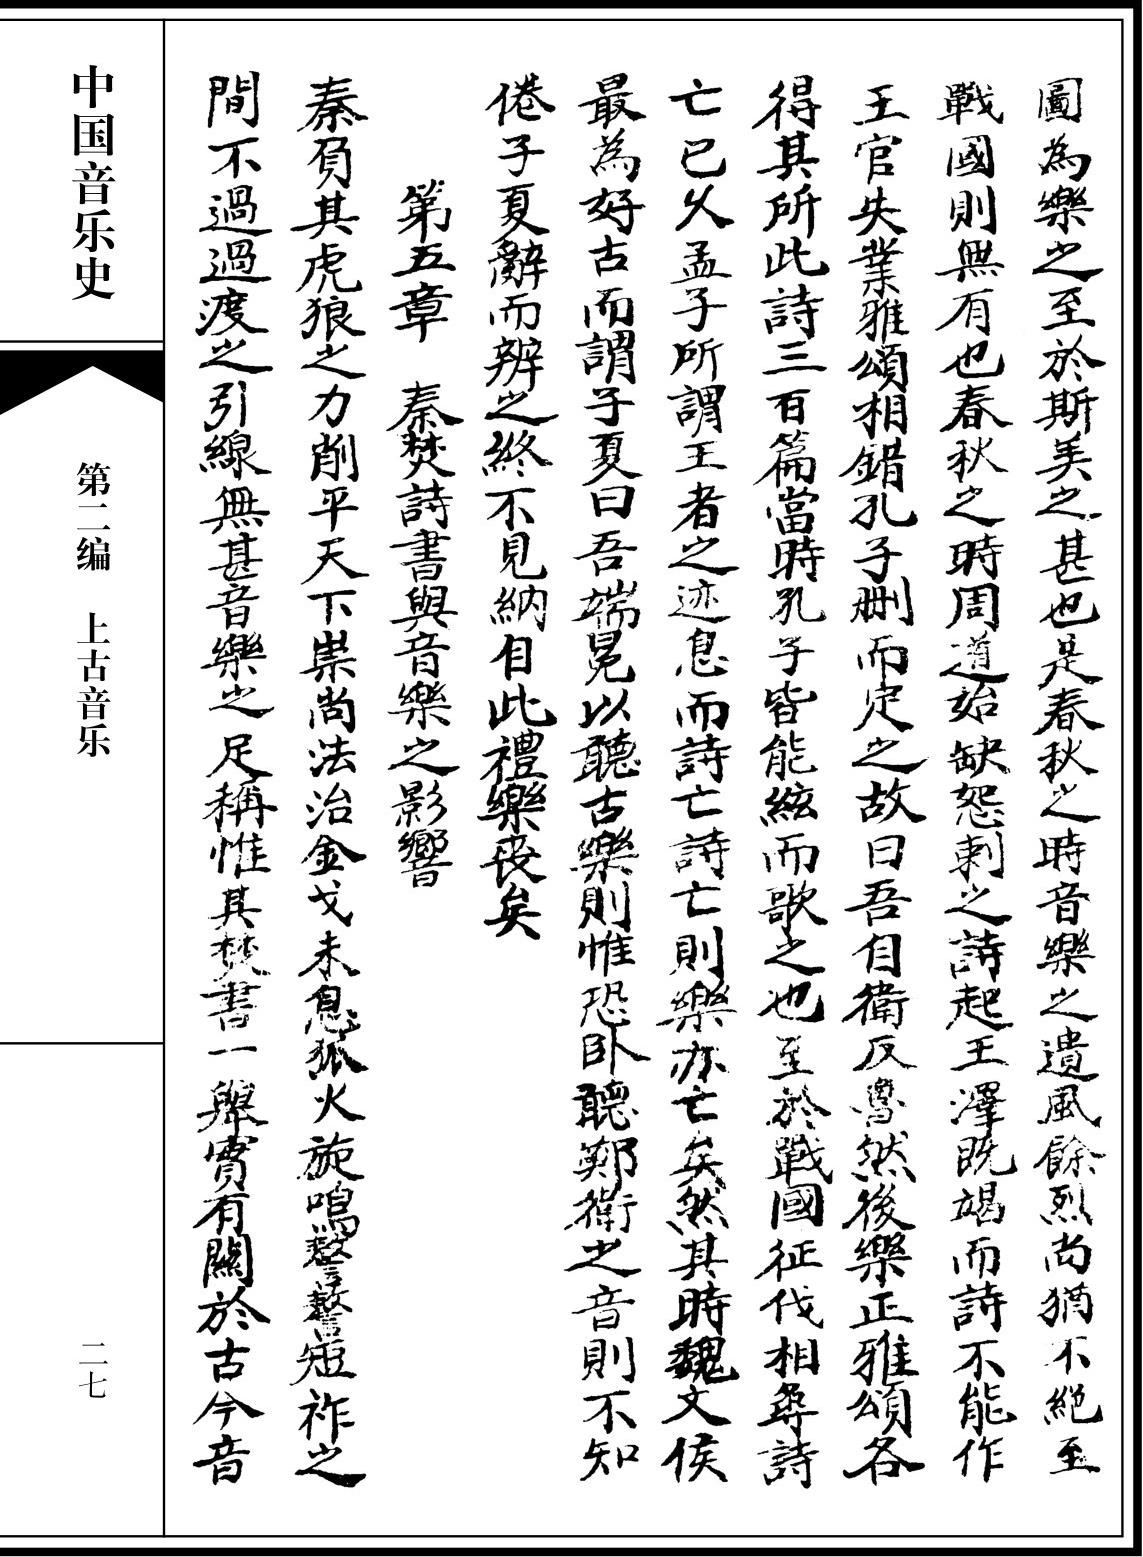 圖為樂之至於斯美之甚也是春秋之時音樂之遺風餘烈尚猶不絕至
戰國則無有也春秋之時周道始缺怨刺之詩起王澤既竭而詩不能作
王官失業雅頌相錯孔子刪而定之故曰吾自衛反魯然後樂正雅頌各
得其所此詩三百篇當時孔子皆能絃而歌之也至於戰國征伐相尋詩
亡已久孟子所謂王者之迹息而詩亡詩亡則樂亦亡矣然其時魏文侯
最為好古而謂子夏曰吾端冕以聽古樂則惟恐卧聽鄭衛之音則不知
倦子夏辭而辨之終不見納自此禮樂喪矣
第五章 秦焚詩書與音樂之影響
秦負其虎狼之力削平天下崇尚法治金戈未息狐火旋鳴嗸嗸短祚之
間不過過渡之引線無甚音樂之足稱惟其焚書一舉實有關於古今音
中国音乐史
第二编 上古音乐
二七